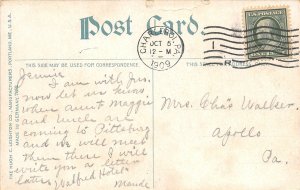 Post Card.
THIS SIDE MAY BE USED FOR CORRESPONDENCE.
THE HUGH C. LEIGHTON CO., MANUFACTURERS, PORTLAND, ME., U.S.A.
MADE IN GERMANY
OCT 5
12-M
1909
1
Jennie
I am with Mrs.
now let me know
when aunt Maggie
and Uncle are
coming to Pittsburg
and we will meet
them there I will
write you a letter
later, Walfred Hotel
Maude
Mrs. Chas Walker,
Apollo
Pa.